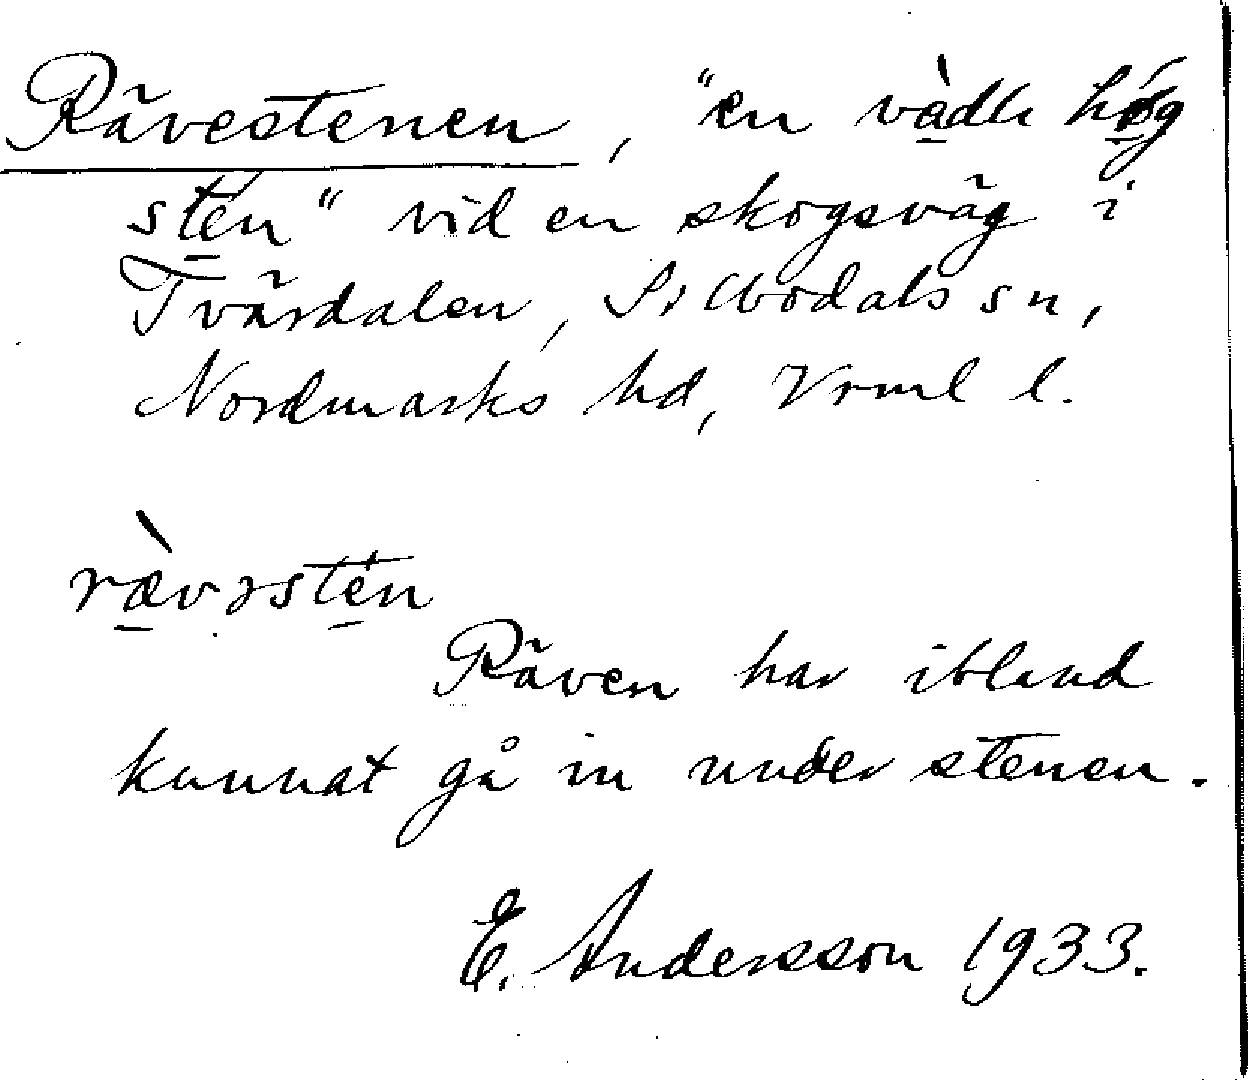 Rävestenen, "en vàdli hög
sten" vid en skogsväg i
Tvärdalen, Sillbodals sn,
Nordmarks hd, Vrml l.
rævəsten
Räven har ibland
kunnat gå in under stenen.
E. Andersson 1933.